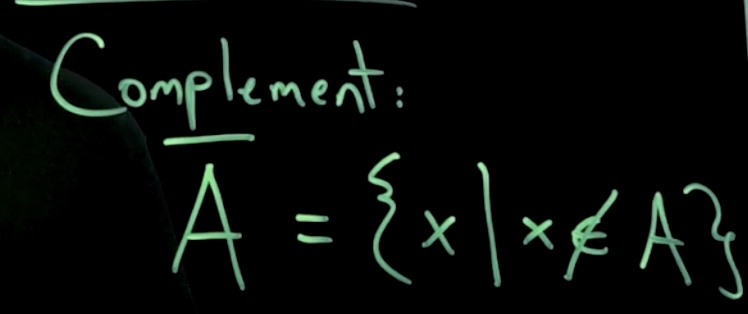 Complement:
A̅ = {x | x ∉ A}